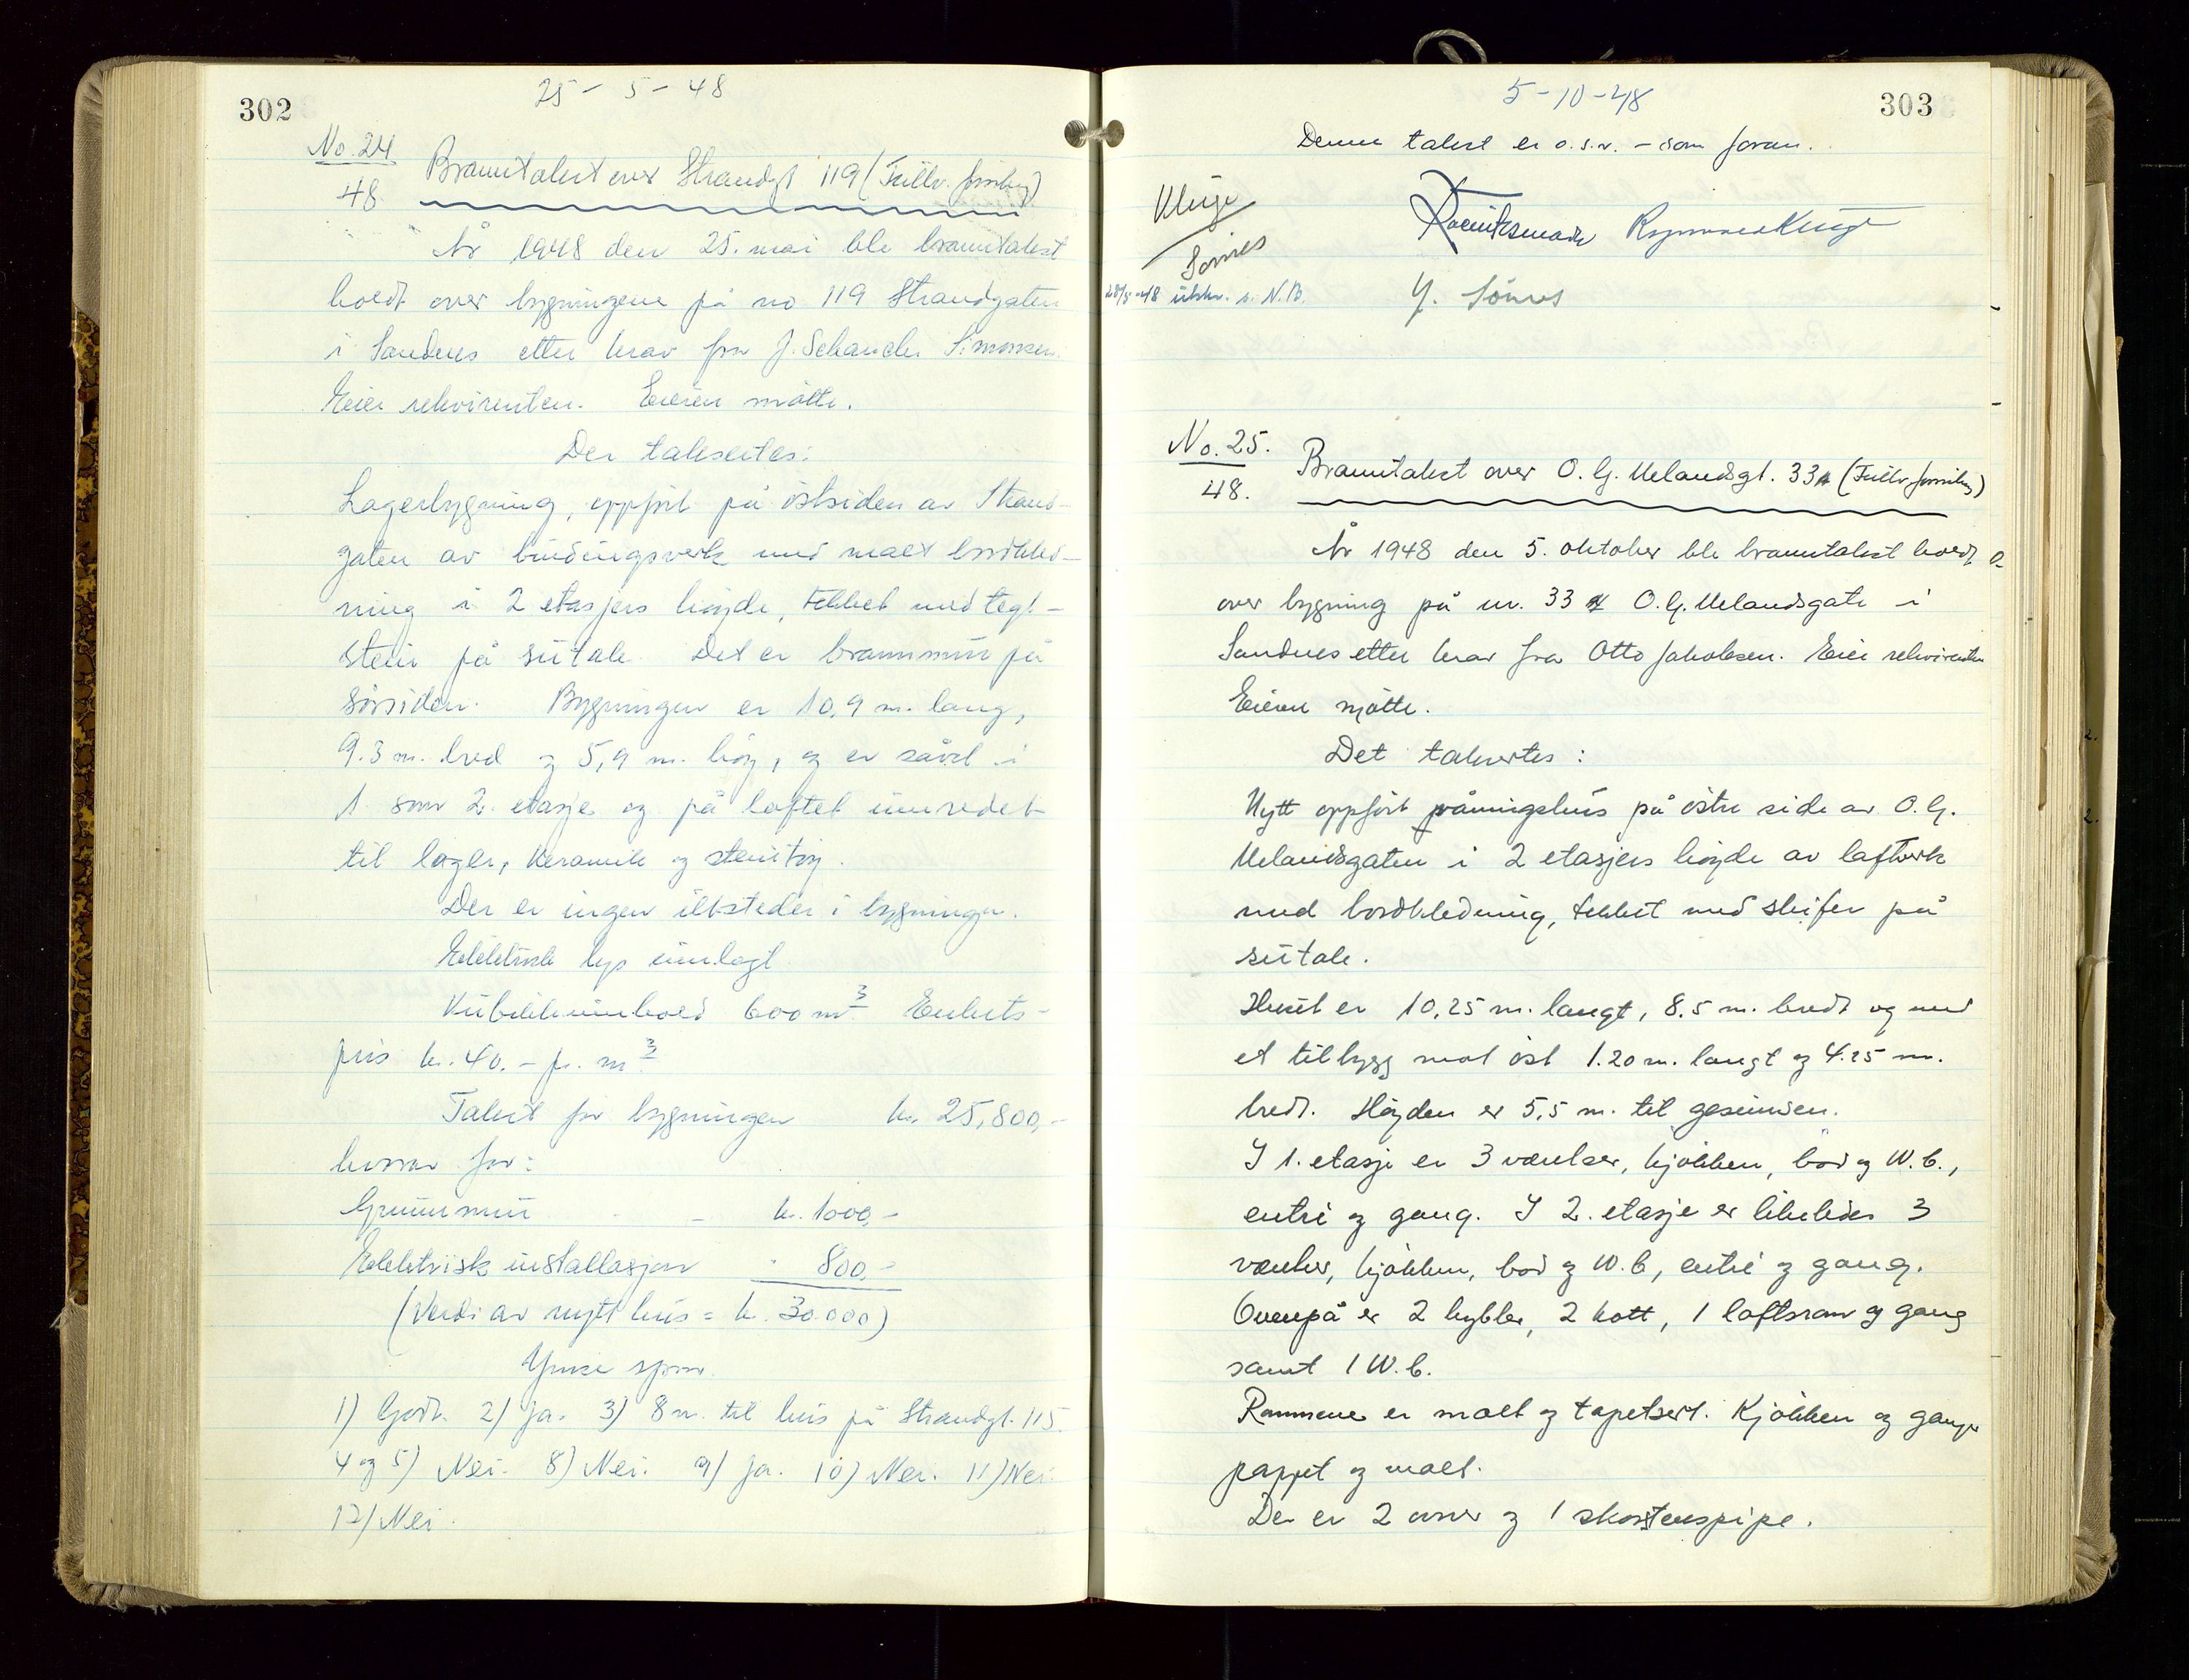 302
25-5-48
No. 24
48
Branntakst over Strandgt 119 (Fullv. forsikring)
År 1948 den 25. mai ble branntakst
holdt over bygningene på no 119 Strandgaten
i Sandnes etter krav fra J. Schanche Simonsen.
Eier rekvirenten. Eieren møtte.
Der takseites:
Lagerbygning, oppført på østsiden av Strand-
gaten av bindingsverk med malt bordkled-
ning i 2 etasjers høyde, tekket med tegl-
stein på sutak. Det er brannmur på
sørsiden. Bygningen er 10,9 m. lang,
9.3 m. bred og 5,9 m. høy, og er såvel i
1. som 2. etasje og på loftet innredet
til lager, keramikk og stentøy.
Der er ingen ildsteder i bygningen.
Elektrisk lys innlagt.
Kubikkinnhold 600 m³. Enhets-
pris kr. 40.- pr. m³.
Takst for bygningen kr. 25,800,-
hvorav for:
Grunnmur - kr. 1000,-
Elektrisk installasjon " 800,-
(Verdi av nytt hus = kr. 30.000)
Ymse spm.
1) Godt. 2) Ja. 3) 8 m. til hus på Strandgt. 115.
4 og 5) Nei. 8) Nei. 9) Ja. 10) Nei. 11) Nei.
12) Nei.
5-10-48
303
Denne takst er o.s.v. - som foran.
Kluge
Sømes
28/5-48 utskr. s. N.B.
Rasmus Kluge
Y. Sømes
No. 25.
48.
Branntakst over O. G. Uelandsgt. 33 (Fullv. forsikring)
År 1948 den 5. oktober ble branntakst holdt
over bygning på nr. 33 O. G. Uelandsgate i
Sandnes etter krav fra Otto Jakobsen. Eier rekvirenten
Eieren møtte.
Det taksertes:
Nytt oppført våningshus på østre side av O. G.
Uelandsgaten i 2 etasjers høyde av laftverk
med bordkledning, tekket med skifer på
sutak.
Huset er 10,25 m. langt, 8.5 m. bredt og med
et tilbygg mot øst 1.20 m. langt og 4.25 m.
bredt. Høyden er 5,5 m. til gesimsen.
I 1. etasje er 3 værelser, kjøkken, bod og W.C.,
entré og gang. I 2. etasje er likeledes 3
værelser, kjøkken, bod og W.C, entré og gang.
Ovenpå er 2 hybler, 2 kott, 1 loftsrom og gang
samt 1 W.C.
Rommene er malt og tapetsert. Kjøkken og ganger
pappet og malt.
Der er 2 ovner og 1 skorstenspipe.